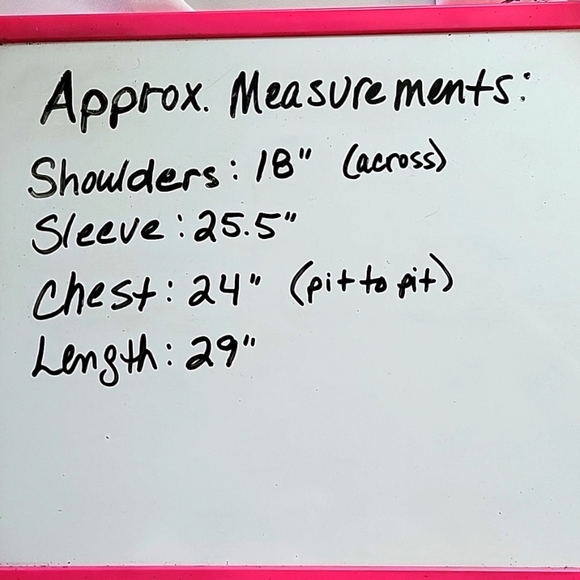 Approx. Measurements:
Shoulders: 18" (across)
Sleeve: 25.5"
Chest: 24" (pit to pit)
Length: 29"